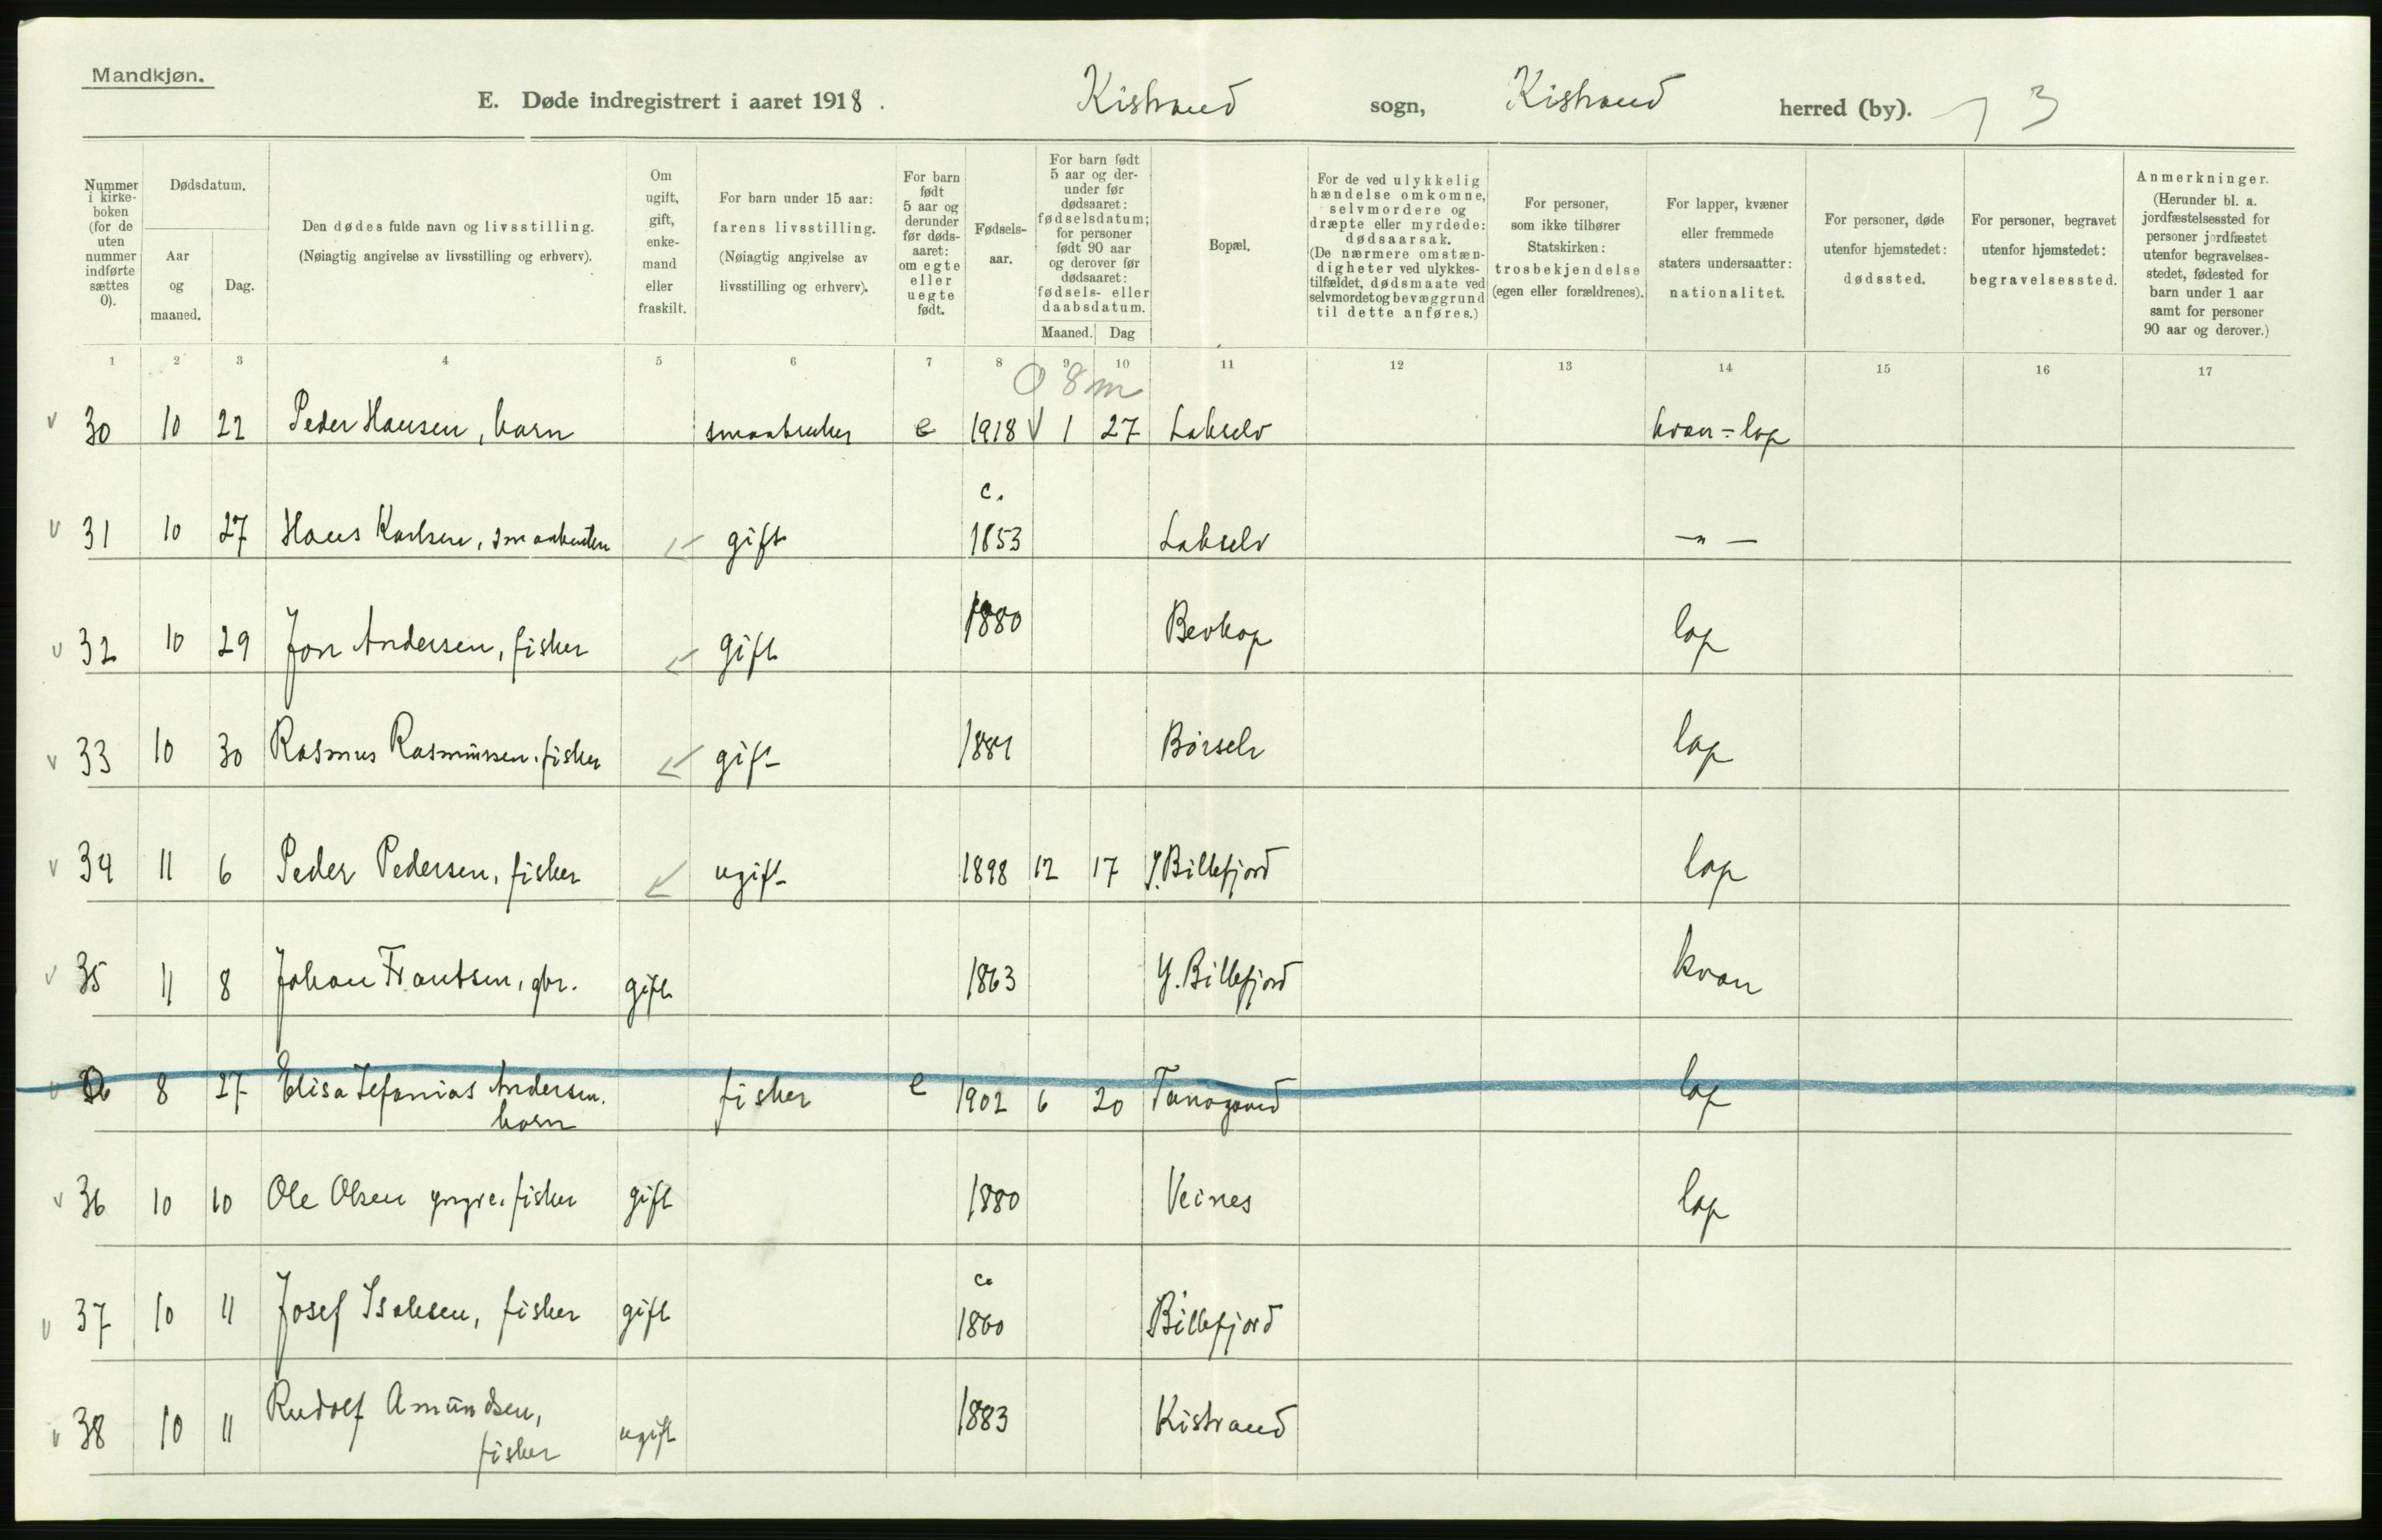 Mandkjøn.
E. Døde indregistrert i aaret 1918. Kistrand sogn, Kistrand herred (by). 3
Nummer i kirke-boken (for de uten nummer indførte sættes 0).
Dødsdatum.
Aar og maaned.
Dag.
Den dødes fulde navn og livsstilling.
(Nøiagtig angivelse av livsstilling og erhverv).
Om ugift, gift, enke-mand eller fraskilt.
For barn under 15 aar: farens livsstilling.
(Nøiagtig angivelse av livsstilling og erhverv).
For barn født 5 aar og derunder før døds-aaret: om egte eller uegte født.
Fødsels-aar.
For barn født 5 aar og der-under før dødsaaret: fødselsdatum; for personer født 90 aar og derover før dødsaaret: fødsels- eller daabsdatum.
Maaned. Dag
Bopæl.
For de ved ulykkelig hændelse omkomne, selvmordere og dræpte eller myrdede: dødsaarsak.
(De nærmere omstæn-digheter ved ulykkes-tilfældet, dødsmaate ved selvmordet og bevæggrund til dette anføres.)
For personer, som ikke tilhører Statskirken: trosbekjendelse (egen eller forældrenes).
For lapper, kvæner eller fremmede staters undersaatter: nationalitet.
For personer, døde utenfor hjemstedet: dødssted.
For personer, begravet utenfor hjemstedet: begravelsessted.
Anmerkninger.
(Herunder bl. a. jordfæstelsessted for personer jordfæstet utenfor begravelses-stedet, fødested for barn under 1 aar samt for personer 90 aar og derover.)
1 2 3 4 5 6 7 8 9 10 11 12 13 14 15 16 17
0 8 m
v 30 10 22 Peder Hansen, barn smaabruker e 1918 1 27 Lakselv kvæn - lap
c.
v 31 10 27 Hans Karlsen, smaabruker gift 1853 Lakselv — " —
v 32 10 29 Jon Andersen, fisker gift 1880 lap
v 33 10 30 Rasmus Rasmussen, fisker gift 1881 Børselv lap
v 34 11 6 Peder Pedersen, fisker ugift 1898 12 17 Y. Billefjord lap
v 35 11 8 Johan Frantsen, gbr. gift 1863 Y. Billefjord kvæn
v 8 27 Elisa Andersen. fisker e 1902 6 20 lap
barn
v 36 10 10 Ole Olsen yngre, fisker gift 1880 Veines lap
c.
v 37 10 11 Josef Isaksen, fisker gift 1860 Billefjord
v 38 10 11 Rudolf Amundsen, ugift 1883 Kistrand
fisker